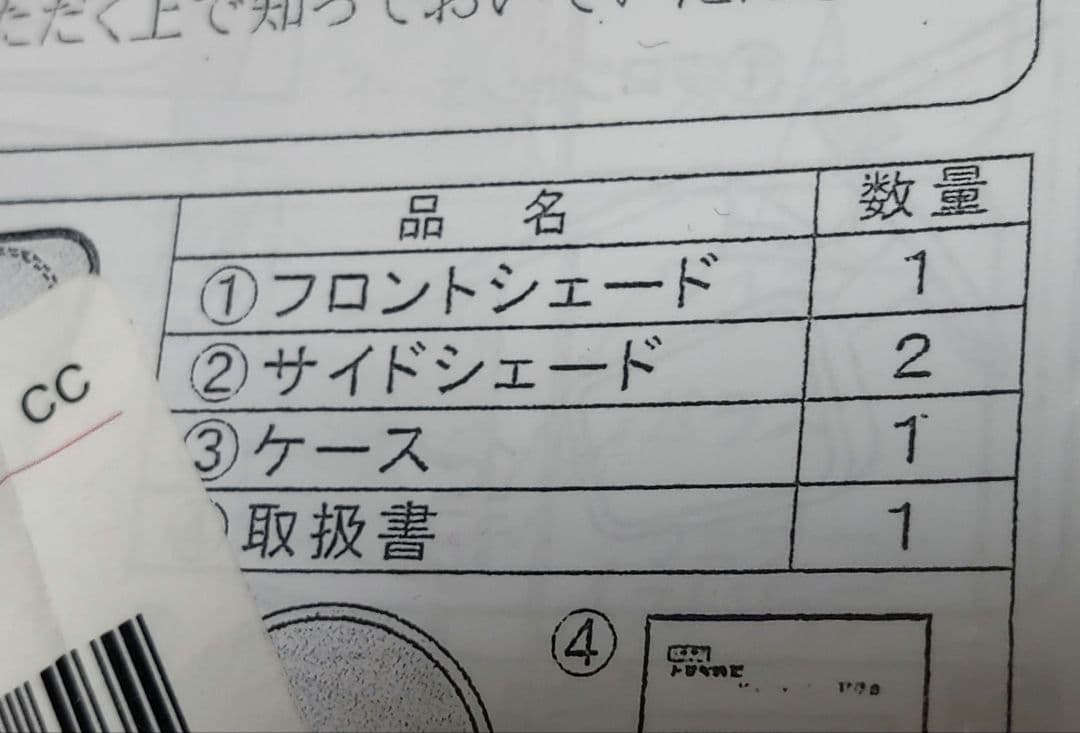 ただく上で知っておいていただ
品　名 数量
①フロントシェード 1
②サイドシェード 2
③ケース 1
取扱書 1
CC
④